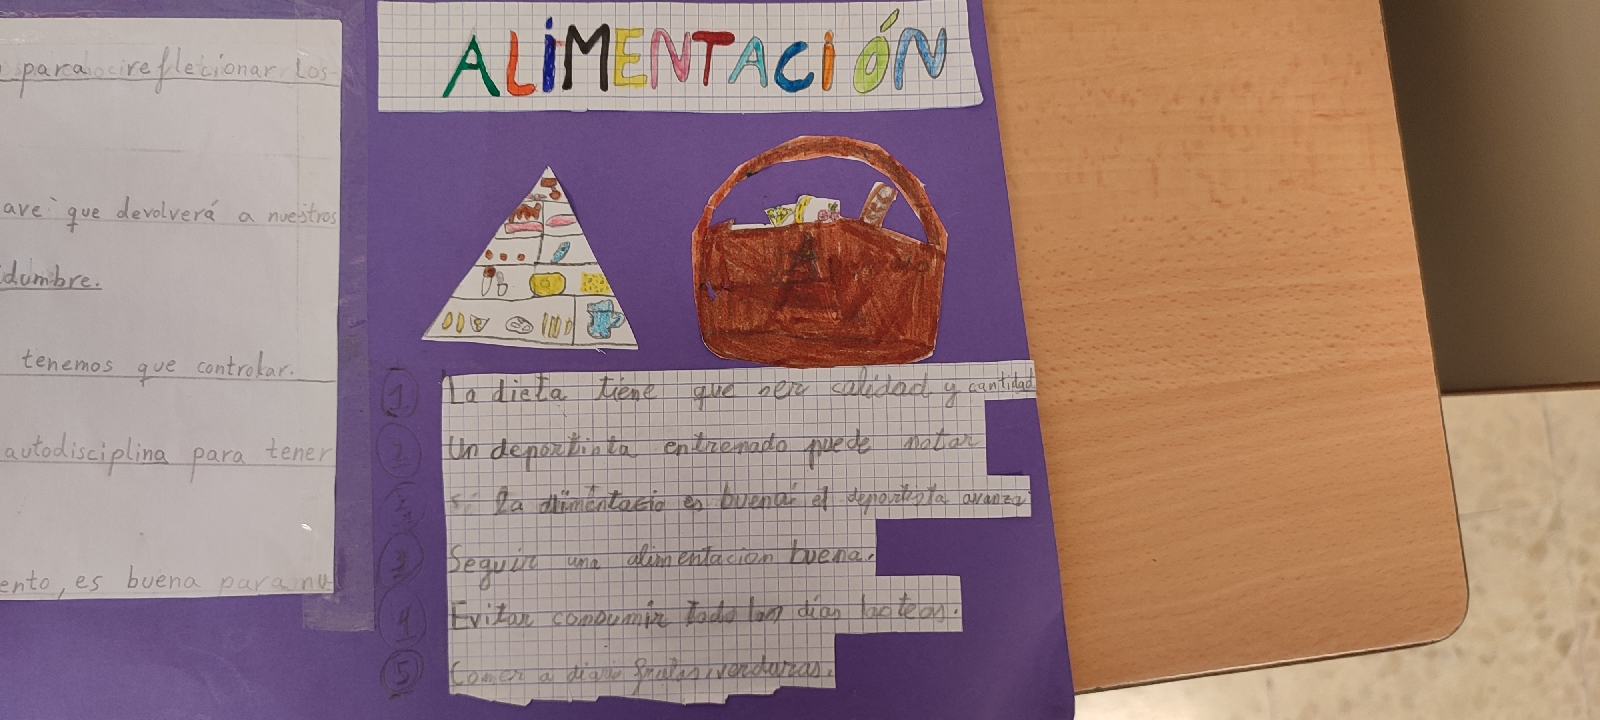 para reflecionar los
ave que devolverá a nuestros
dumbre.
tenemos que controlar.
autodisciplina para tener
ento, es buena para nu
ALIMENTACIÓN
1 La dieta tiene que ser calidad y cantidad
2 Un deportista entrenado puede notar
si la alimentacio es buena el deportista avanza
3 Seguir una alimentacion buena.
4 Evitar consumir todo los días lacteos.
5 Comer a diario frutas, verduras.